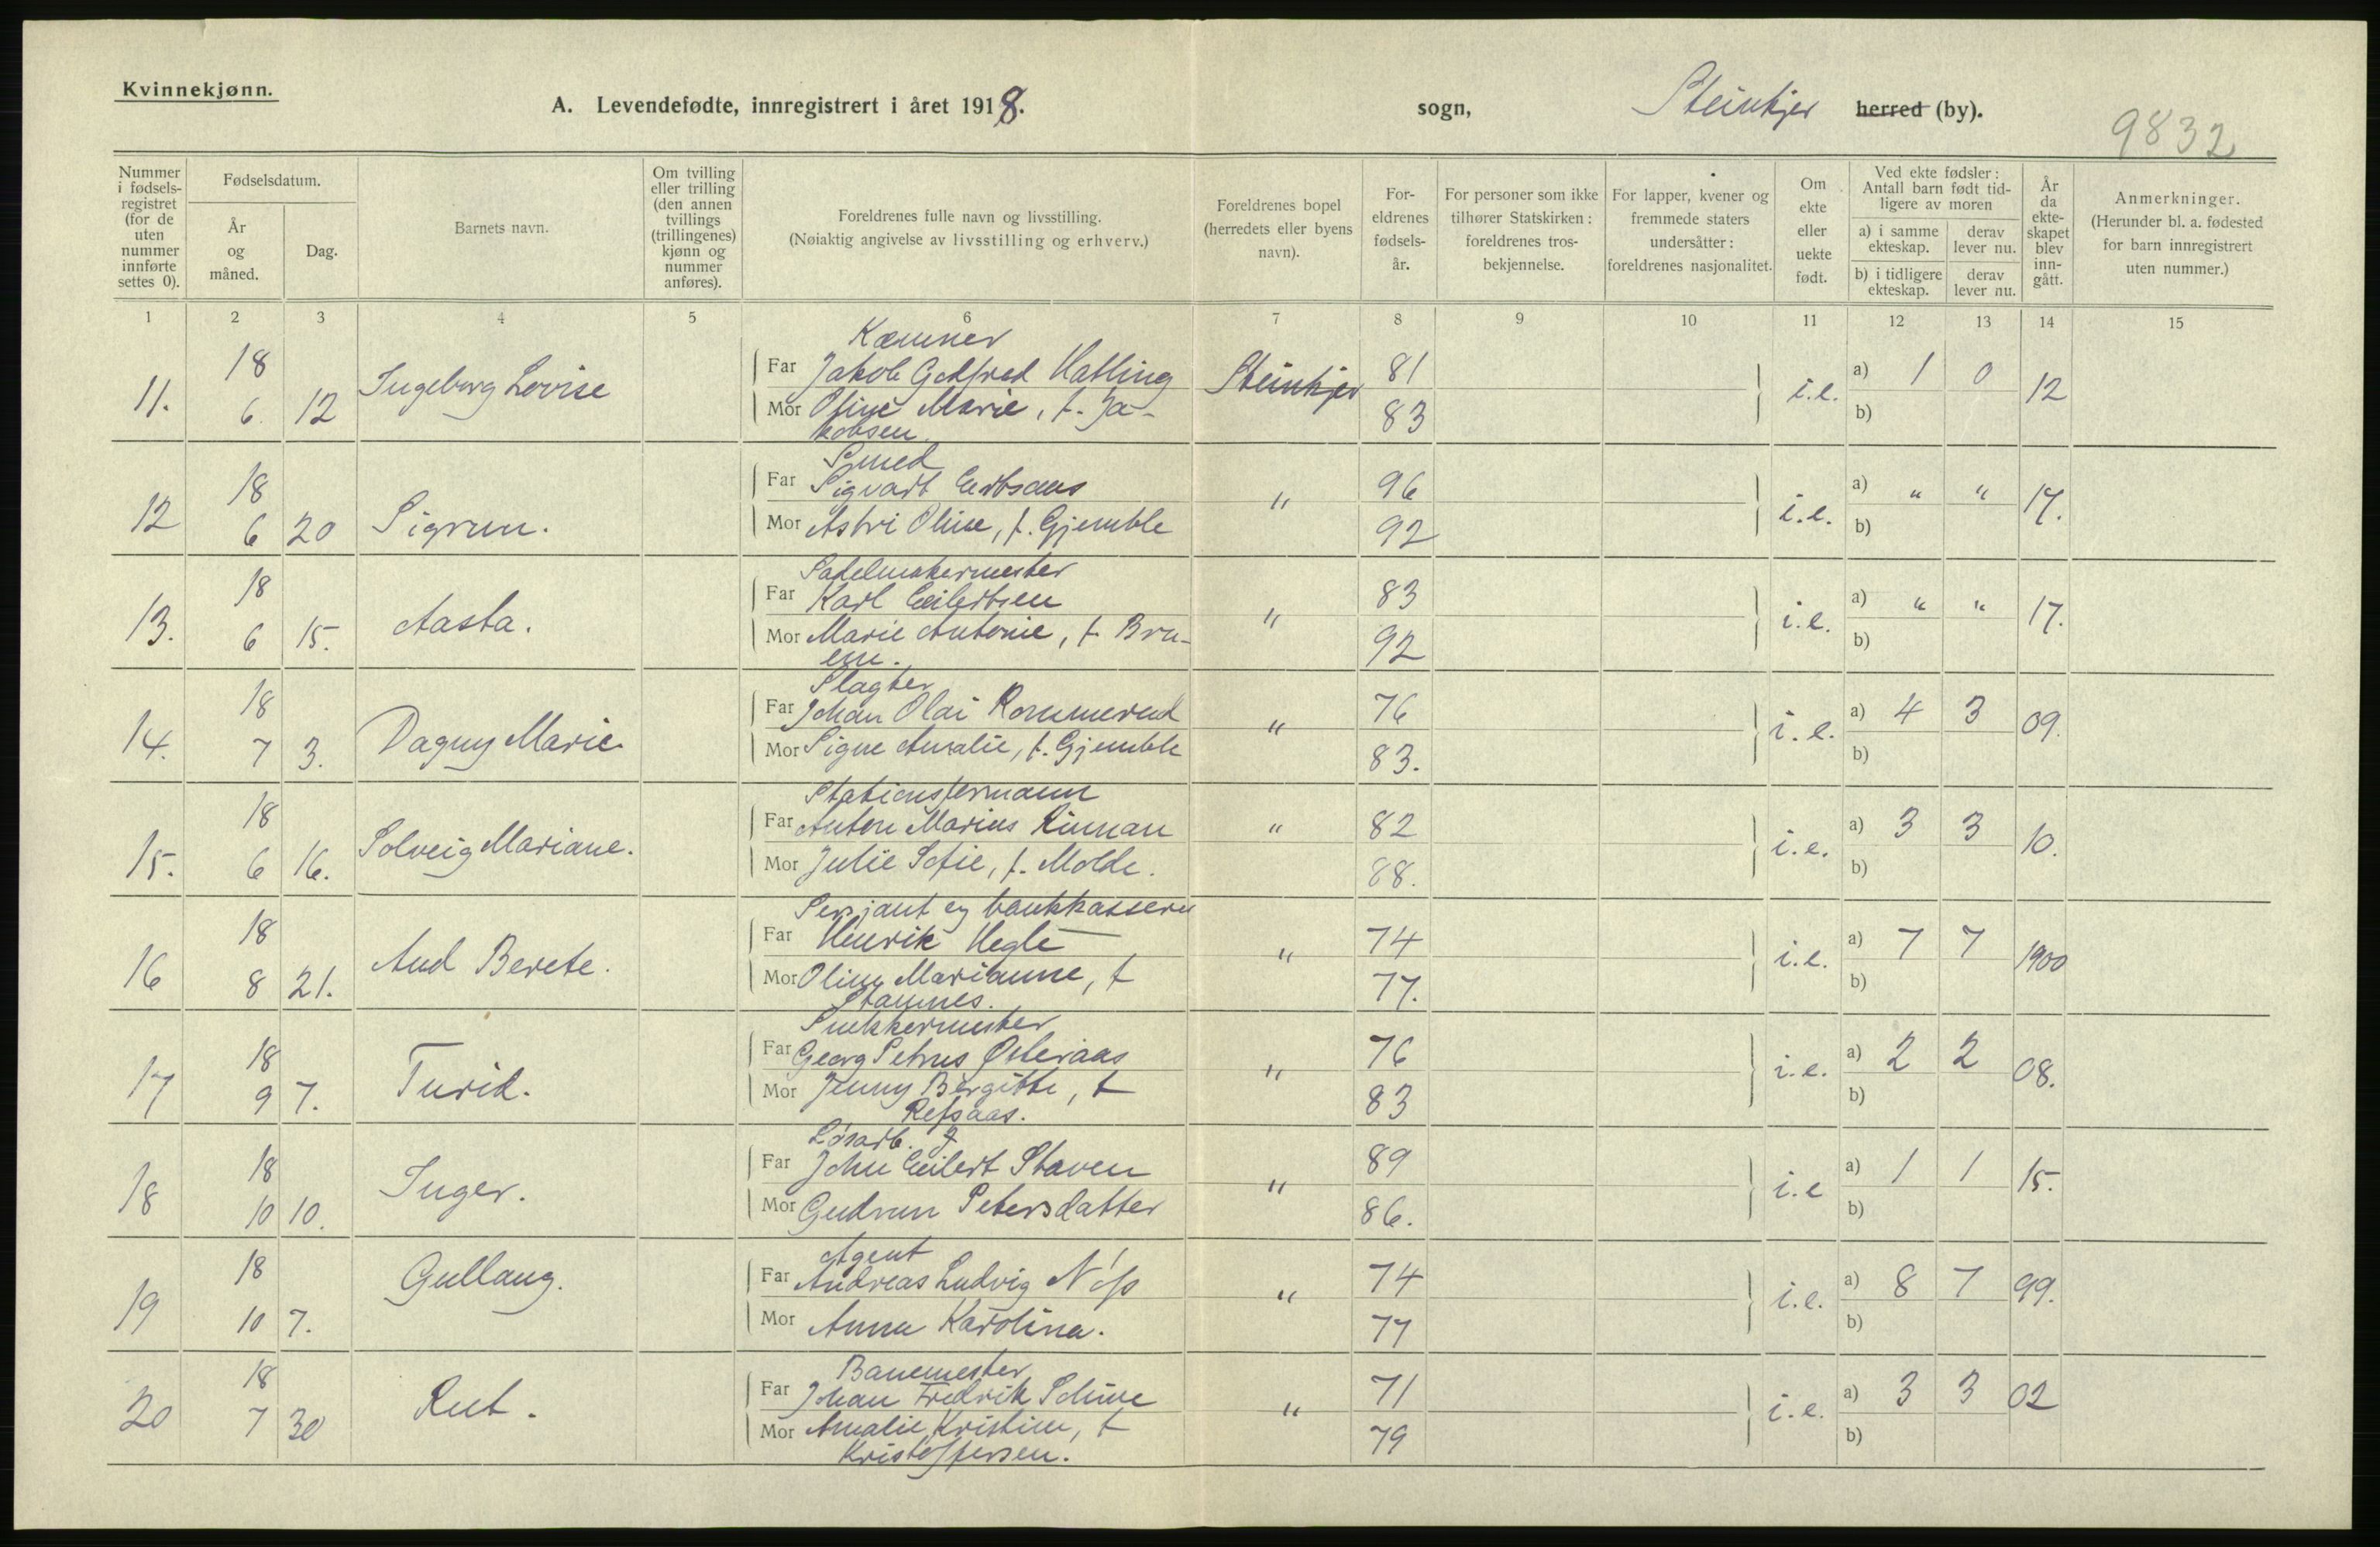 Kvinnekjønn.
A. Levendefødte, innregistrert i året 1918.
sogn,
Steinkjer herred (by).
9832
Nummer i fødsels-registret (for de uten nummer innførte settes 0).
Fødselsdatum.
År og måned.
Dag.
Barnets navn.
Om tvilling eller trilling (den annen tvillings (trillingenes) kjønn og nummer anføres).
Foreldrenes fulle navn og livsstilling.
(Nøiaktig angivelse av livsstilling og erhverv.)
Foreldrenes bopel (herredets eller byens navn).
For-eldrenes fødsels-år.
For personer som ikke tilhører Statskirken: foreldrenes tros-bekjennelse.
For lapper, kvener og fremmede staters undersåtter: foreldrenes nasjonalitet.
Om ekte eller uekte født.
Ved ekte fødsler: Antall barn født tid-ligere av moren
a) i samme ekteskap.
derav lever nu.
b) i tidligere ekteskap.
derav lever nu.
År da ekte-skapet blev inn-gått.
Anmerkninger.
(Herunder bl. a. fødested for barn innregistrert uten nummer.)
1 2 3 4 5 6 7 8 9 10 11 12 13 14 15
Kæmner
18 Far Jakob Godfred Hatling Steinkjer 81 a) 1 0
11. 6. 12 Ingeborg Lovise Mor Oline Marie, f. Ja- 83 i.e. b) 12
kobsen.
Smed
18 Far Sigvart 96 a) " "
12 6 20 Sigrun. Mor Astri Oline, f. Gjemble " 92 i.e. b) 17.
Sadelmakermester
18 Far Karl Eilertsen 83 a) " "
13. 6 15. Aasta. Mor Marie Antonie, f. Bru- " 92 i.e. b) 17.
em.
Slagter
18 Far Johan Olai Rommerud 76 a) 4 3
14. 7 3. Dagny Marie. Mor Signe Amalie, f. Gjemble " 83. i.e. b) 09.
Stationsformann
18 Far Anton Marius Rinnan " 82 a) 3 3
15. 6 16. Solveig Mariane. Mor Julie Sofie, f. Molde. 88. i.e. b) 10.
Sersjant og bankkasserer
18 Far Henrik Hegle 74 a) 7 7
16 8 21. Aud Berete. Mor Oline Marianne, f " 77. i.e. b) 1900
Stamnes.
Snekkermester
18 Far Georg Petrus Østeraas 76 a) 2 2
17 9 7. Turid. Mor Jenny Bergitte, f " 83 i.e. b) 08.
Refsaas.
Løsarb.
18 Far John Eilert Staven 89 a) 1 1
18 10 10. Inger. Mor Gudrun Petersdatter " 86. i.e b) 15.
Agent
18 Far Andreas Ludvig 74 a) 8 7
19 10 7. Gullaug. Mor Anna Karolina. " 77 i.e. b) 99.
Banemester
18 Far Johan Fredrik Schive 71 a) 3 3
20 7 30 Rut. Mor Amalie Kristine, f " 79 i.e. b) 02
Kristoffersen.